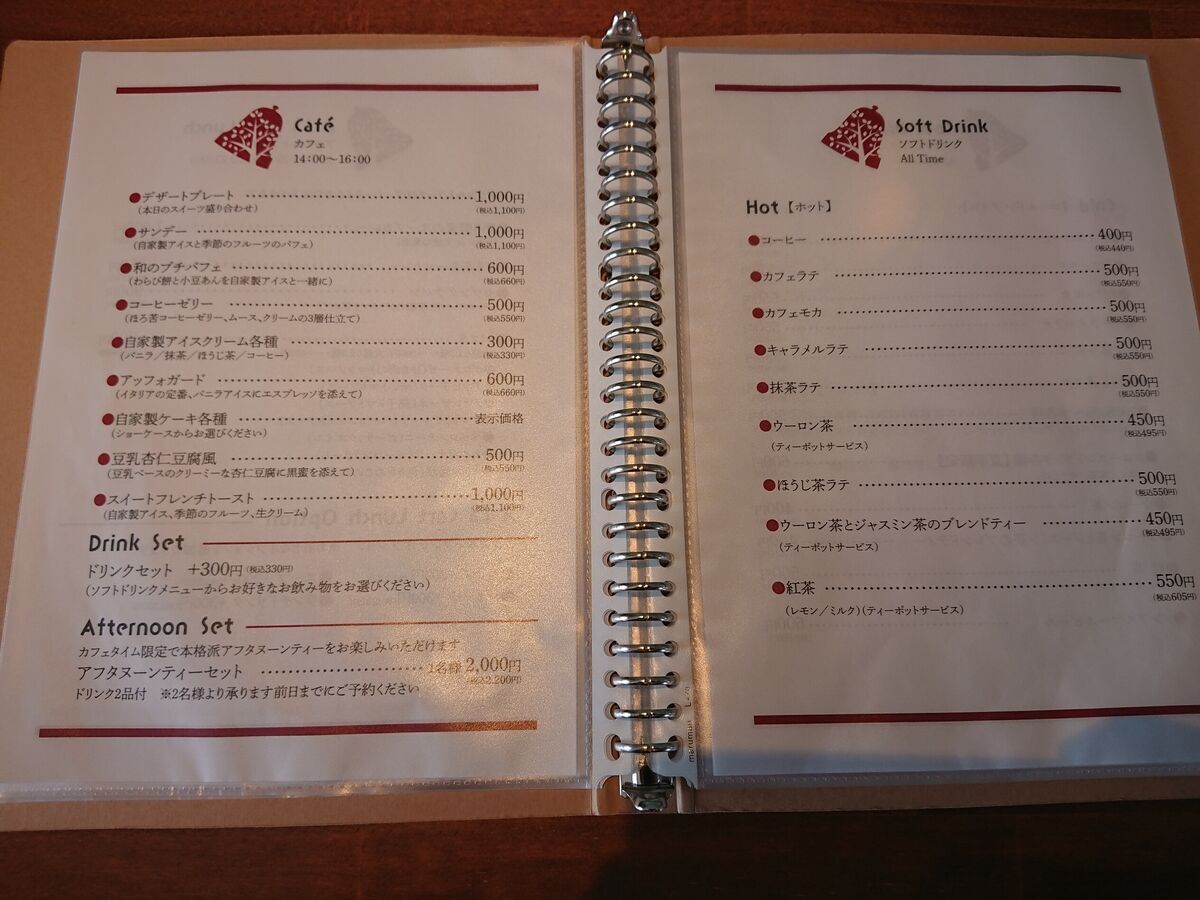 Café
カフェ
14:00〜16:00
●デザートプレート 1,000円
(本日のスイーツ盛り合わせ) (税込1,100円)
●サンデー 1,000円
(自家製アイスと季節のフルーツのパフェ) (税込1,100円)
●和のプチパフェ 600円
(わらび餅と小豆あんを自家製アイスと一緒に) (税込660円)
●コーヒーゼリー 500円
(ほろ苦コーヒーゼリー、ムース、クリームの3層仕立て) (税込550円)
●自家製アイスクリーム各種 300円
(バニラ／抹茶／ほうじ茶／コーヒー) (税込330円)
●アッフォガード 600円
(イタリアの定番、バニラアイスにエスプレッソを添えて) (税込660円)
●自家製ケーキ各種 表示価格
(ショーケースからお選びください)
●豆乳杏仁豆腐風 500円
(豆乳ベースのクリーミーな杏仁豆腐に黒蜜を添えて) (税込550円)
●スイートフレンチトースト 1,000円
(自家製アイス、季節のフルーツ、生クリーム) (税込1,100円)
Drink Set
ドリンクセット +300円 (税込330円)
(ソフトドリンクメニューからお好きなお飲み物をお選びください)
Afternoon Set
カフェタイム限定で本格派アフタヌーンティーをお楽しみいただけます
アフタヌーンティーセット 1名様 2,000円
(税込2,200円)
ドリンク2品付 ※2名様より承ります前日までにご予約ください
Soft Drink
ソフトドリンク
All Time
Hot【ホット】
●コーヒー 400円
(税込440円)
●カフェラテ 500円
(税込550円)
●カフェモカ 500円
(税込550円)
●キャラメルラテ 500円
(税込550円)
●抹茶ラテ 500円
(税込550円)
●ウーロン茶 450円
(税込495円)
(ティーポットサービス)
●ほうじ茶ラテ 500円
(税込550円)
●ウーロン茶とジャスミン茶のブレンドティー 450円
(税込495円)
(ティーポットサービス)
●紅茶 550円
(税込605円)
(レモン／ミルク)(ティーポットサービス)